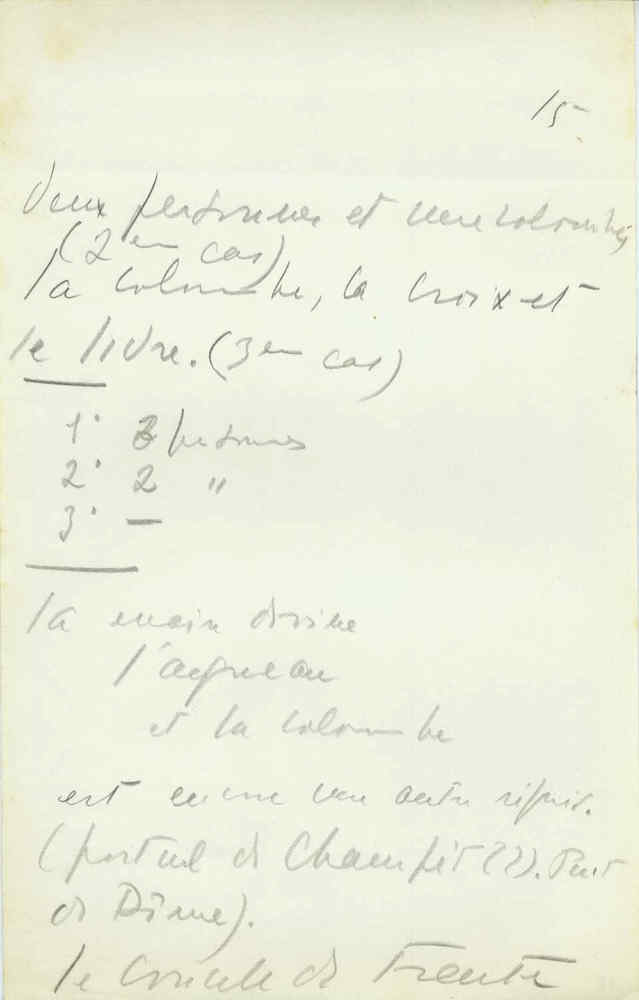 15.
deux personnes et une colombe
(2em cas)
la colombe, la croix et
le livre. (3em cas)
1° 3 personnes
2° 2 "
3° —
la main divine
l'agneau
et la colombe
est encore une autre
(portail de (??). Puy
de Dôme).
le concile de Trente